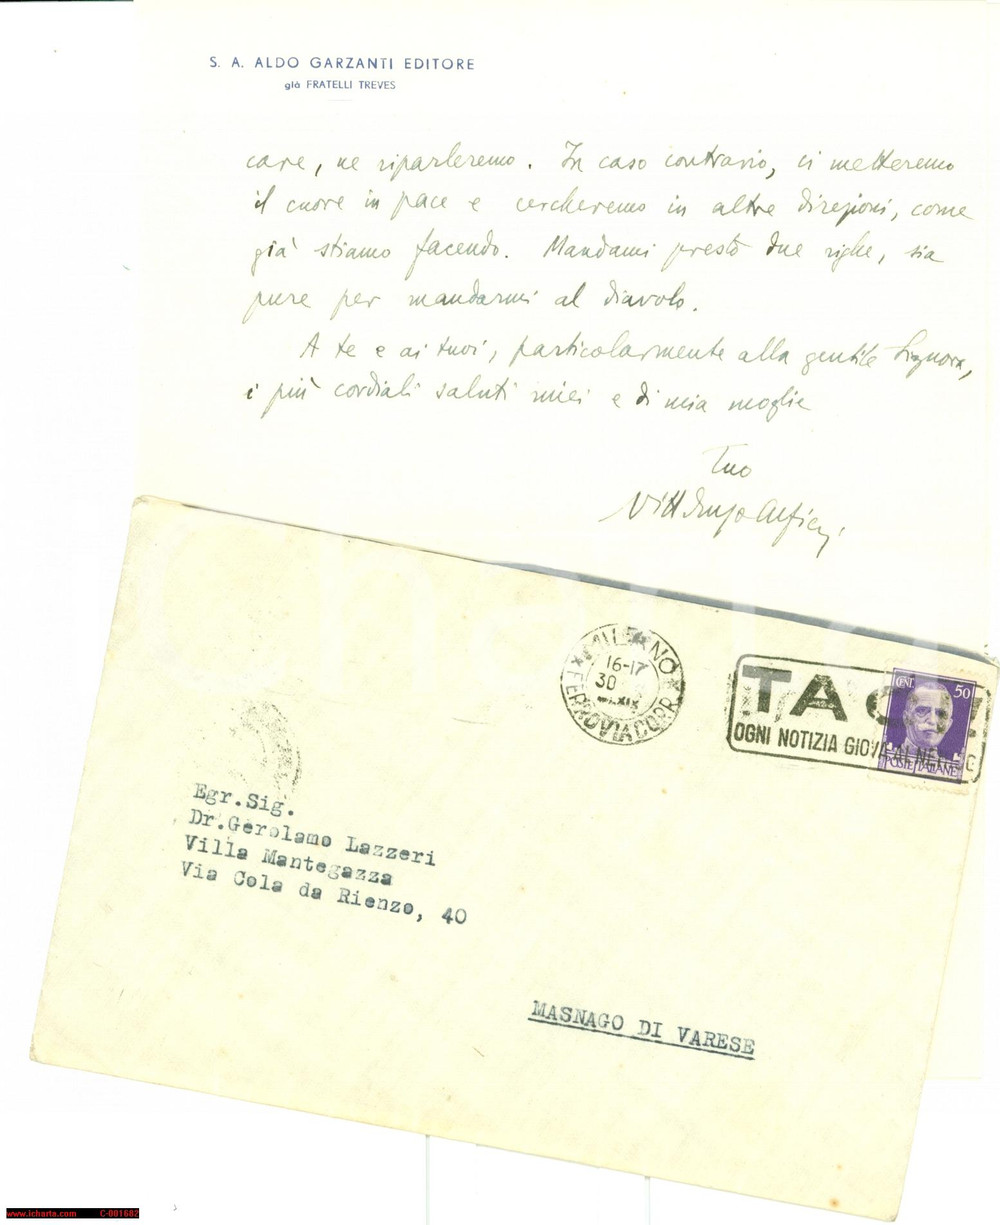 S. A. ALDO GARZANTI EDITORE
già FRATELLI TREVES
care, ne riparleremo. In caso contrario, ci metteremo
il cuore in pace e cercheremo in altre direzioni, come
già stiamo facendo. Mandami presto due righe, sia
pure per mandarmi al diavolo.
A te e ai tuoi, particolarmente alla gentile Signora,
i più cordiali saluti miei e di mia moglie
Tuo
MILANO
16-17
30
XIX
FERROVIA CORR.
CENT. 50
POSTE ITALIANE
OGNI NOTIZIA GIOVA AL NEMICO
Egr.Sig.
Dr.Gerolamo Lazzeri
Villa Mantegazza
Via Cola da Rienzo, 40
MASNAGO DI VARESE
www.icharta.com C-001682